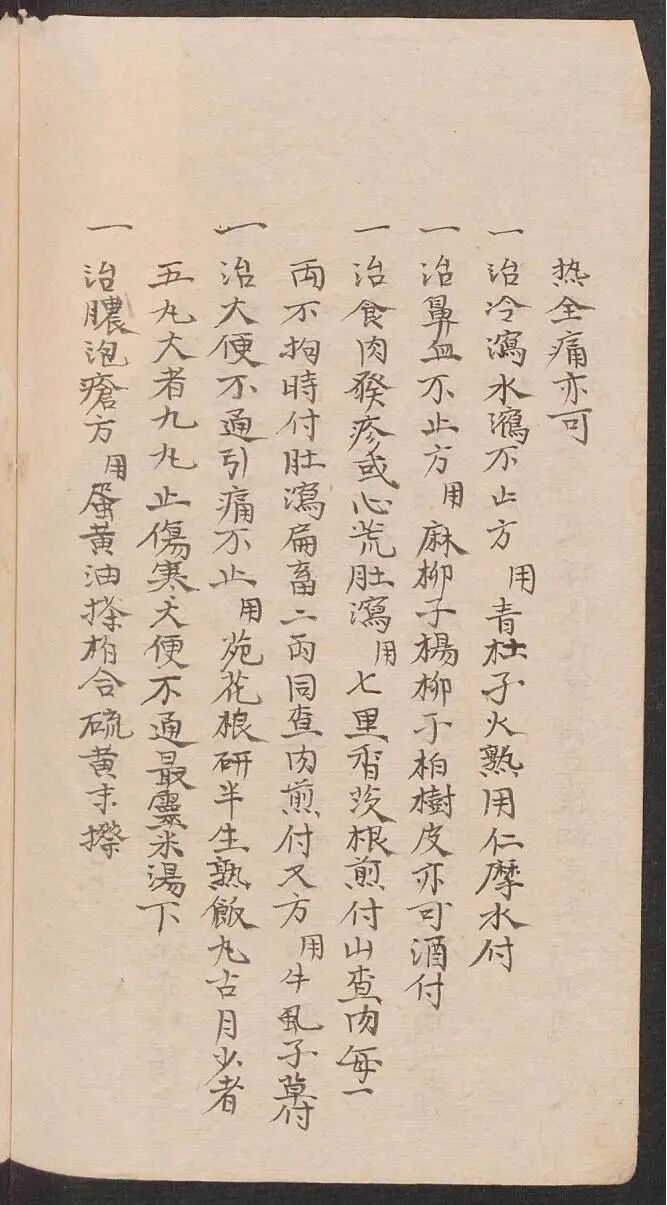 热全痛亦可
一治冷瀉水瀉不止方用青杜子火熟用仁摩水付
一治鼻血不止方用麻柳子楊柳子柏樹皮亦可酒付
一治食肉發疹或心荒肚瀉用七里香茨根煎付山查肉每一
両不拘時付肚瀉扁畜二両同查肉煎付又方用牛虱子草付
一治大便不通引痛不止用苑花根研半生熟飯丸古月少者
五丸大者九丸止傷寒大便不通最靈米湯下
一治膿泡瘡方用蛋黄油搽柏合硫黄末搽